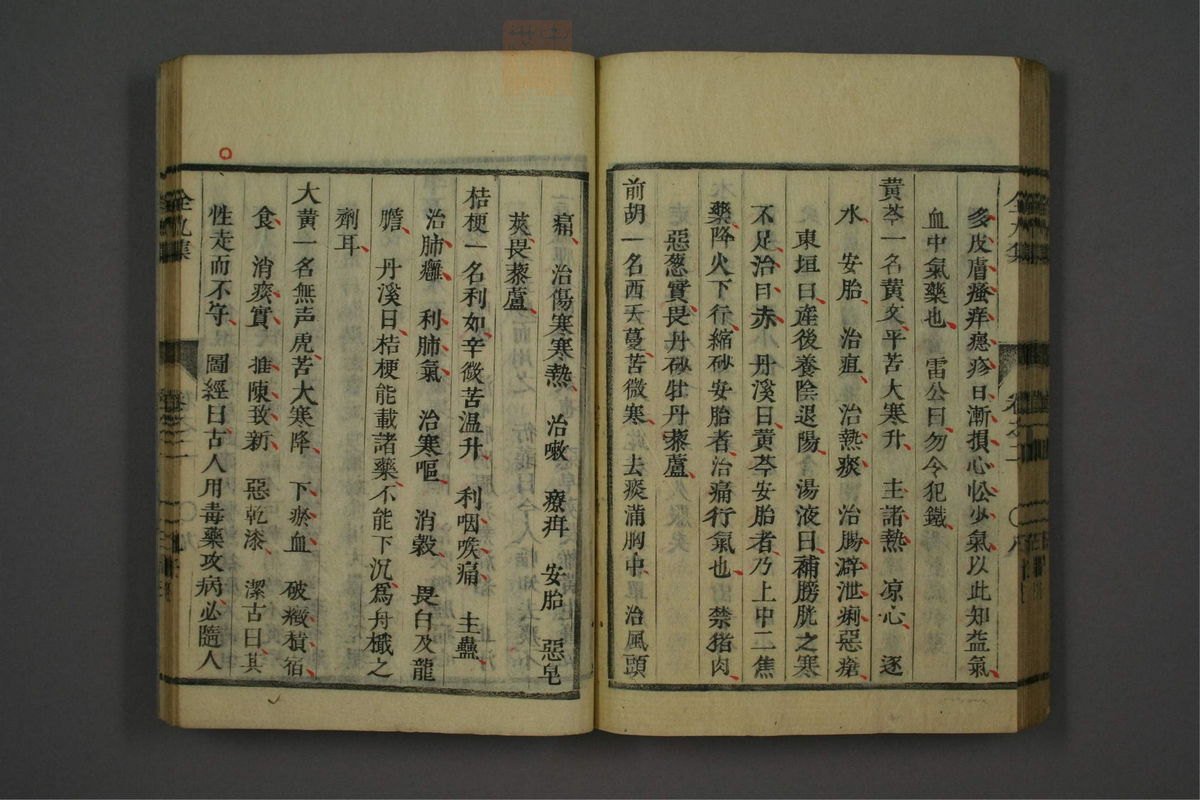 多皮膚瘙痒癮疹曰漸損心忪少氣以此知益氣
血中氣藥也 雷公曰勿令犯鐵
黃芩一名黃文平苦大寒升 主諸熱 凉心 逐
水 安胎 治疽 治熱痰 治腸澼泄痢惡瘡
東垣曰産後養陰退陽 湯液曰補膀胱之寒
不足治曰赤 丹溪曰黃芩安胎者乃上中二焦
藥降火下行縮砂安胎者治痛行氣也 禁猪肉
惡葱實畏丹砂牡丹藜蘆
前胡一名西天蔓苦微寒 去痰滿胸中 治風頭
痛 治傷寒寒熱 治嗽 療疳 安胎 惡皂
莢畏藜蘆
桔梗一名利如辛微苦温升 利咽喉痛 主蠱
治肺癰 利肺氣 治寒嘔 消穀 畏白及龍
膽 丹溪曰桔梗能載諸藥不能下沉爲舟檝之
劑耳
大黃一名無声虎苦大寒降 下瘀血 破癥積宿
食 消痰實 推陳致新 惡乾漆 潔古曰其
性走而不守 圖經曰古人用毒藥攻病必隨人
全九集
卷之二